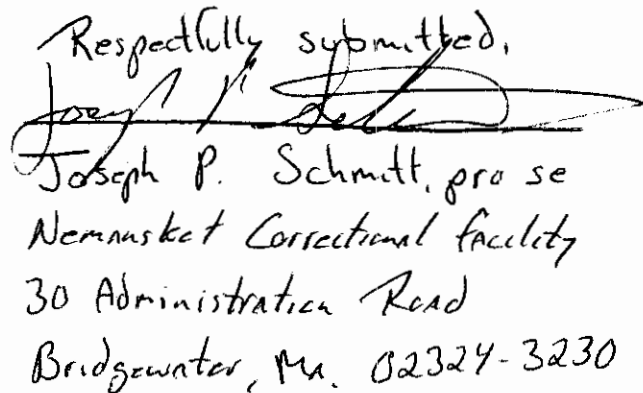 Respectfully submitted,
Joseph P. Schmitt, pro se
Nemansket Correctional facility
30 Administration Road
Bridgewater, Ma. 02324-3230